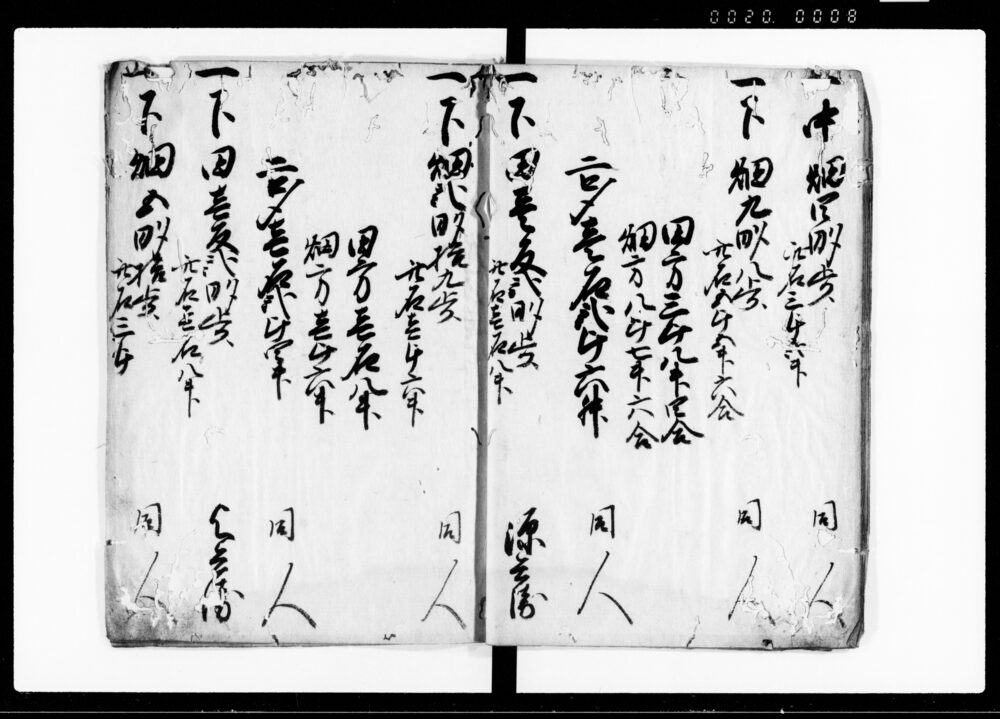 0020. 0008
一中畑四畝歩 同人
此石三斗弐升
一下畑九畝八歩 同人
此石五斗五升六合
田方三斗八升四合
畑方八斗七升六合
二口〆壱石弐斗六升 同人
一下田壱反弐畝歩 源兵衛
此石壱石八升
一下畑弐畝拾九歩 同人
此石壱斗六升
田方壱石八升
畑方壱斗六升
二口〆壱石弐斗四升 同人
一下田壱反弐畝歩 兵衛
此石壱石八升
一下畑五畝拾歩 同人
此石三斗